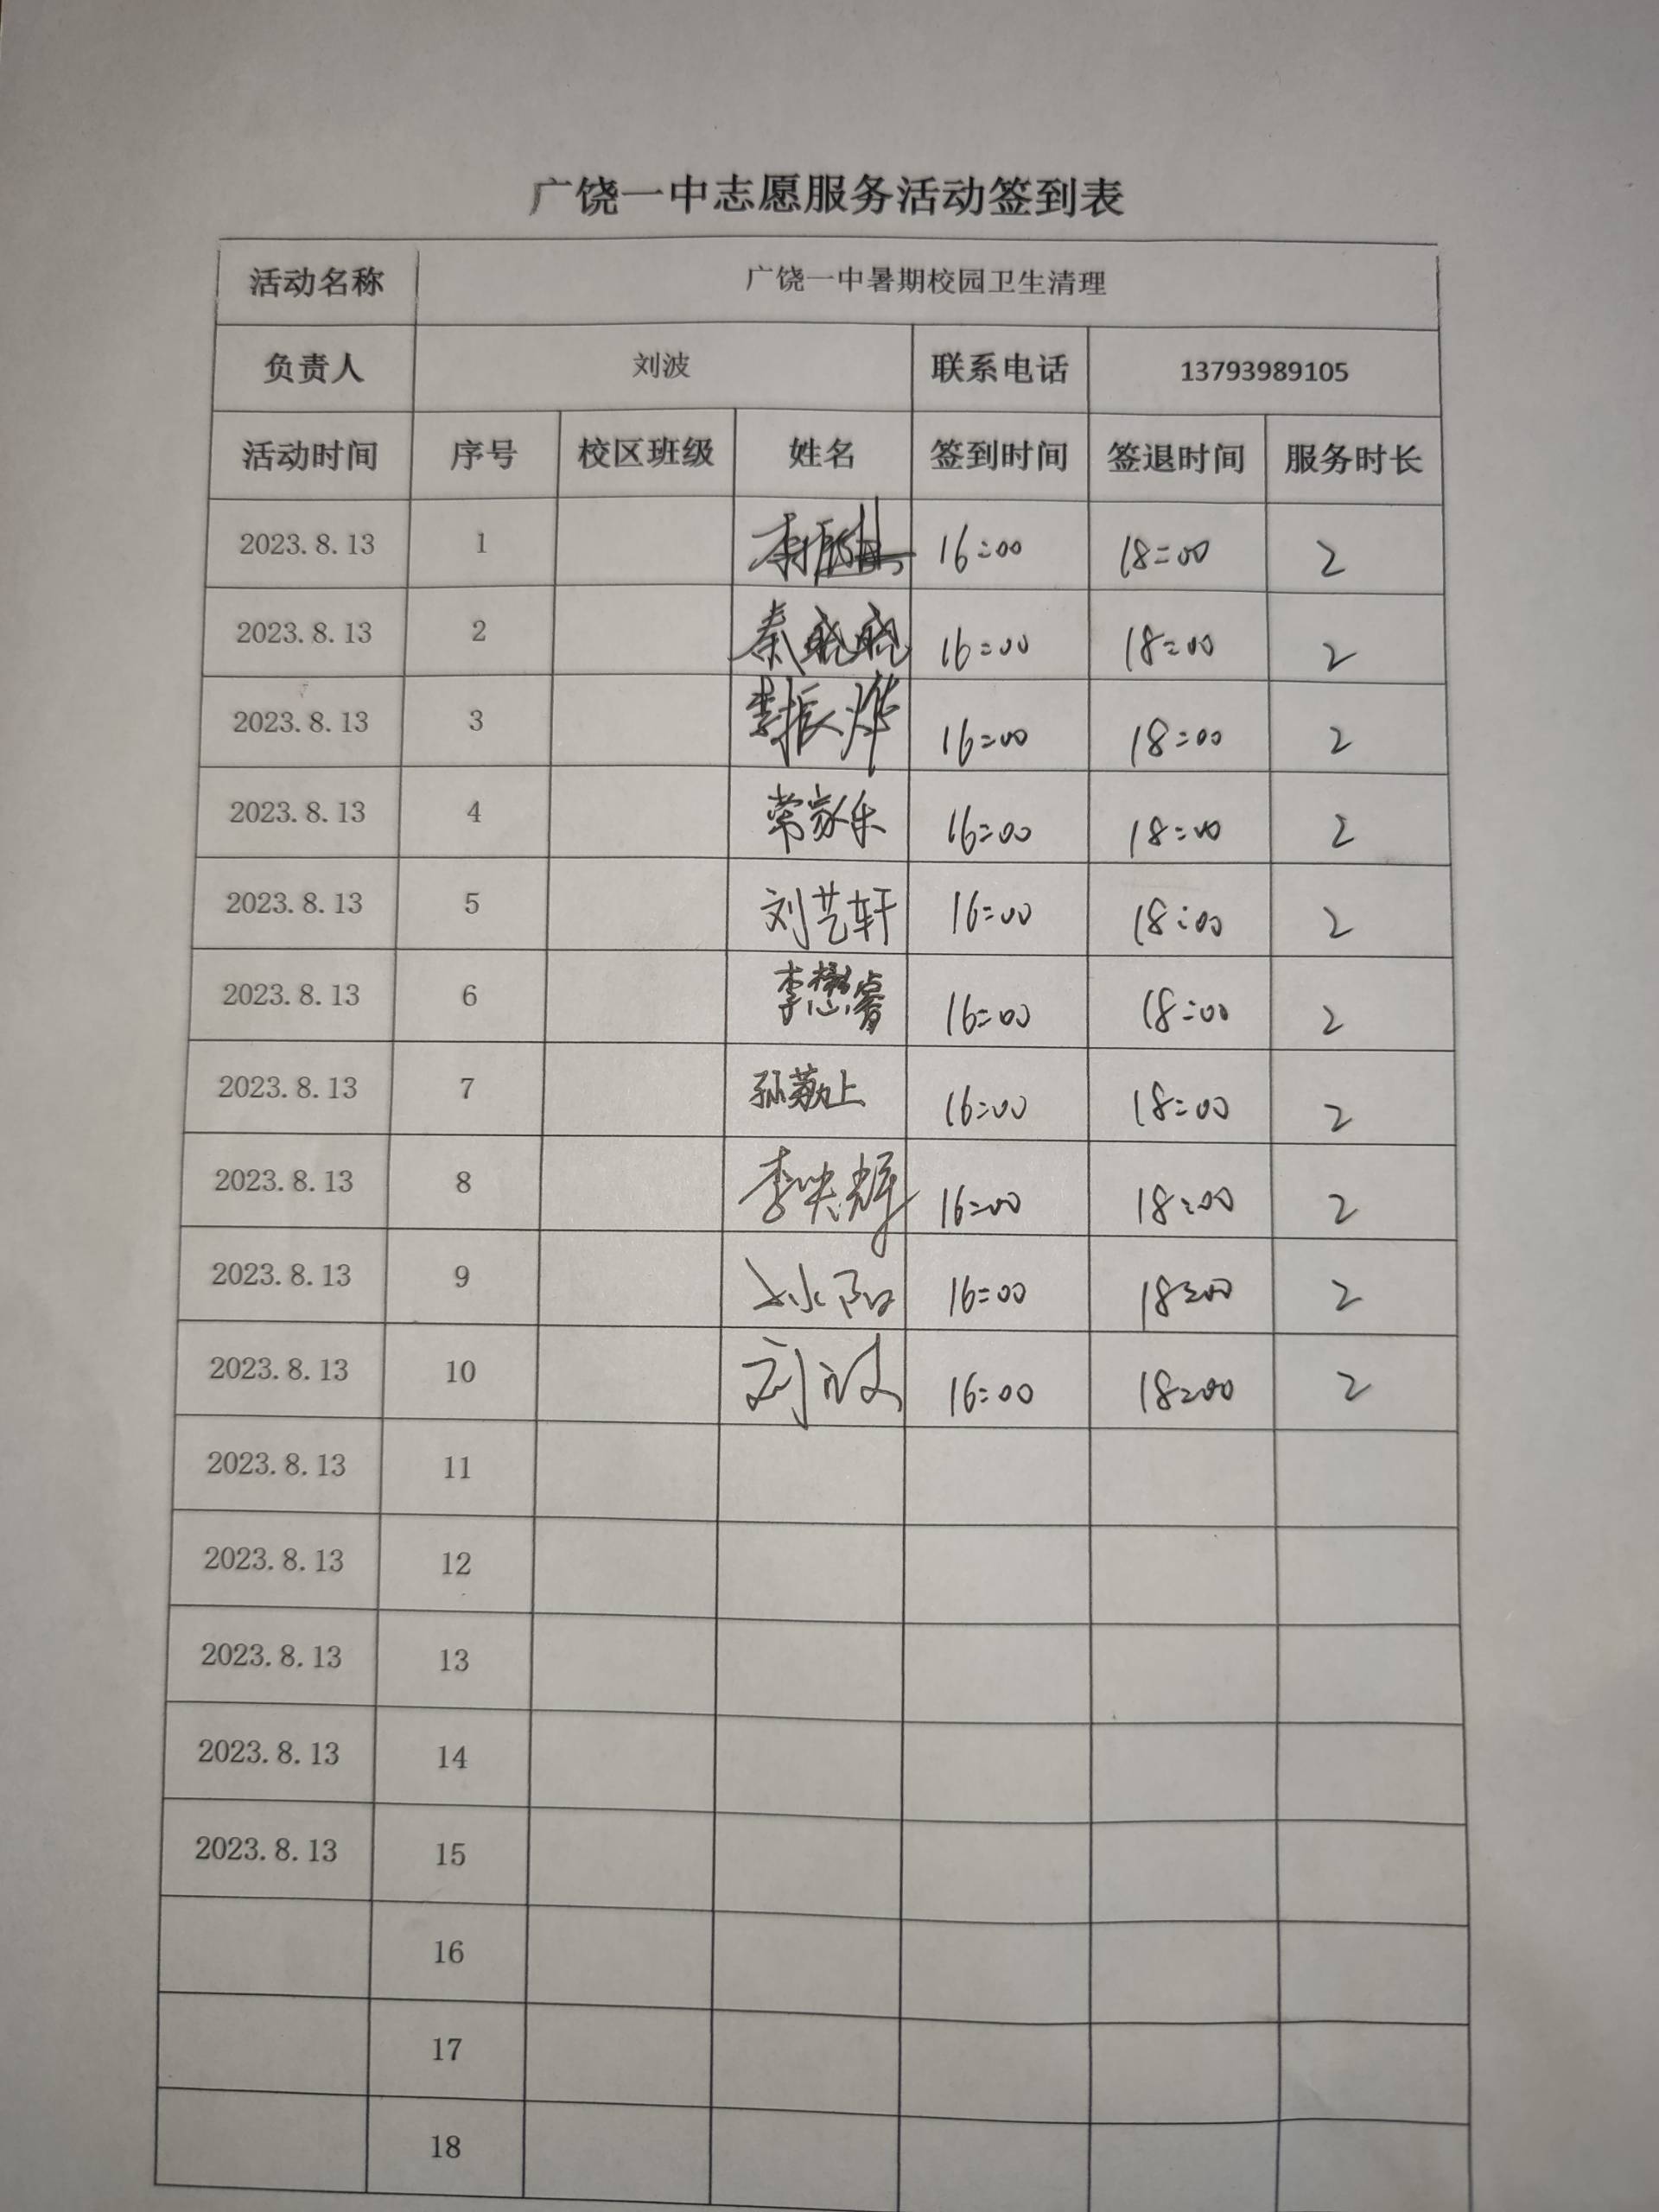 广饶一中志愿服务活动签到表
活动名称 广饶一中暑期校园卫生清理
负责人 刘波 联系电话 13793989105
活动时间 序号 校区班级 姓名 签到时间 签退时间 服务时长
2023.8.13 1 16:00 18:00 2
2023.8.13 2 秦晓晓 16:00 18:00 2
2023.8.13 3 李振烨 16:00 18:00 2
2023.8.13 4 常家乐 16:00 18:00 2
2023.8.13 5 刘艺轩 16:00 18:00 2
2023.8.13 6 李懋睿 16:00 18:00 2
2023.8.13 7 16:00 18:00 2
2023.8.13 8 16:00 18:00 2
2023.8.13 9 16:00 18:00 2
2023.8.13 10 刘波 16:00 18:00 2
2023.8.13 11
2023.8.13 12
2023.8.13 13
2023.8.13 14
2023.8.13 15
16
17
18